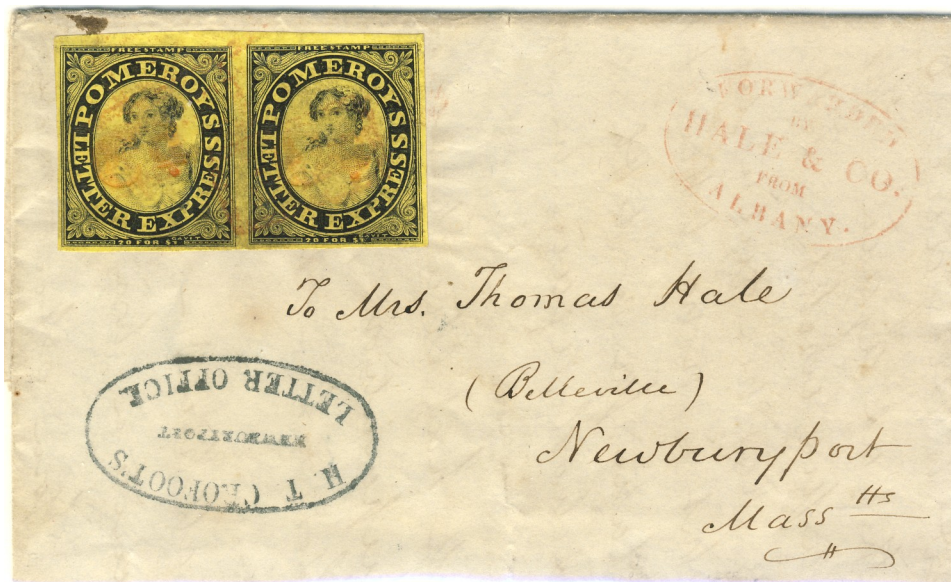 FREE STAMP
POMEROY'S
LETTER EXPRESS
20 FOR $1
FREE STAMP
POMEROY'S
LETTER EXPRESS
20 FOR $1
FORWARDED
BY
HALE & CO.
FROM
ALBANY.
To Mrs. Thomas Hale
(Belleville)
Newburyport
Mass tts
H. T. CROFOOT'S
NEWBURYPORT
LETTER OFFICE